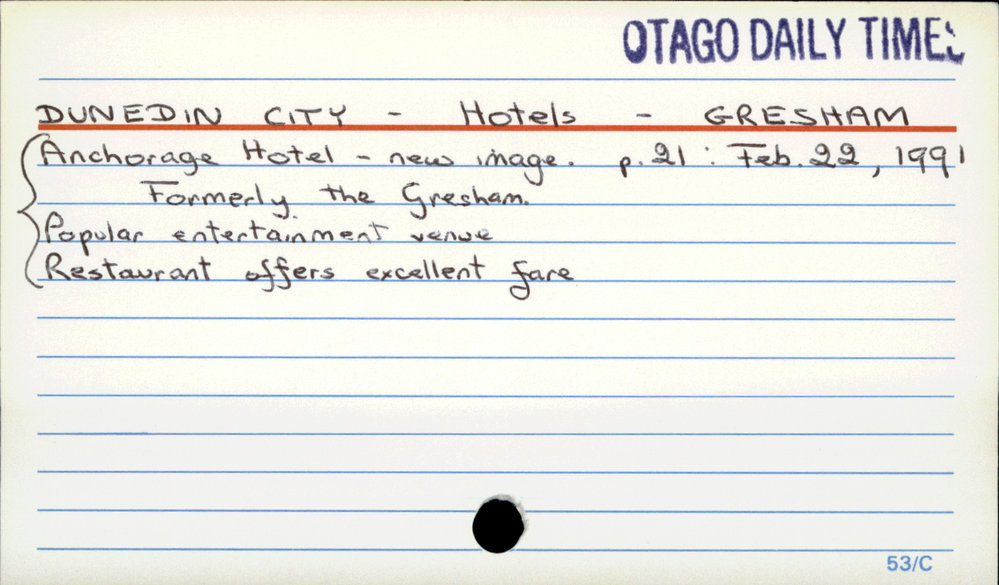 OTAGO DAILY TIMES
DUNEDIN CITY - Hotels - GRESHAM
Anchorage Hotel - new image. p.21 : Feb. 22, 1991
Formerly the Gresham.
Popular entertainment venue
Restaurant offers excellent fare
53/C